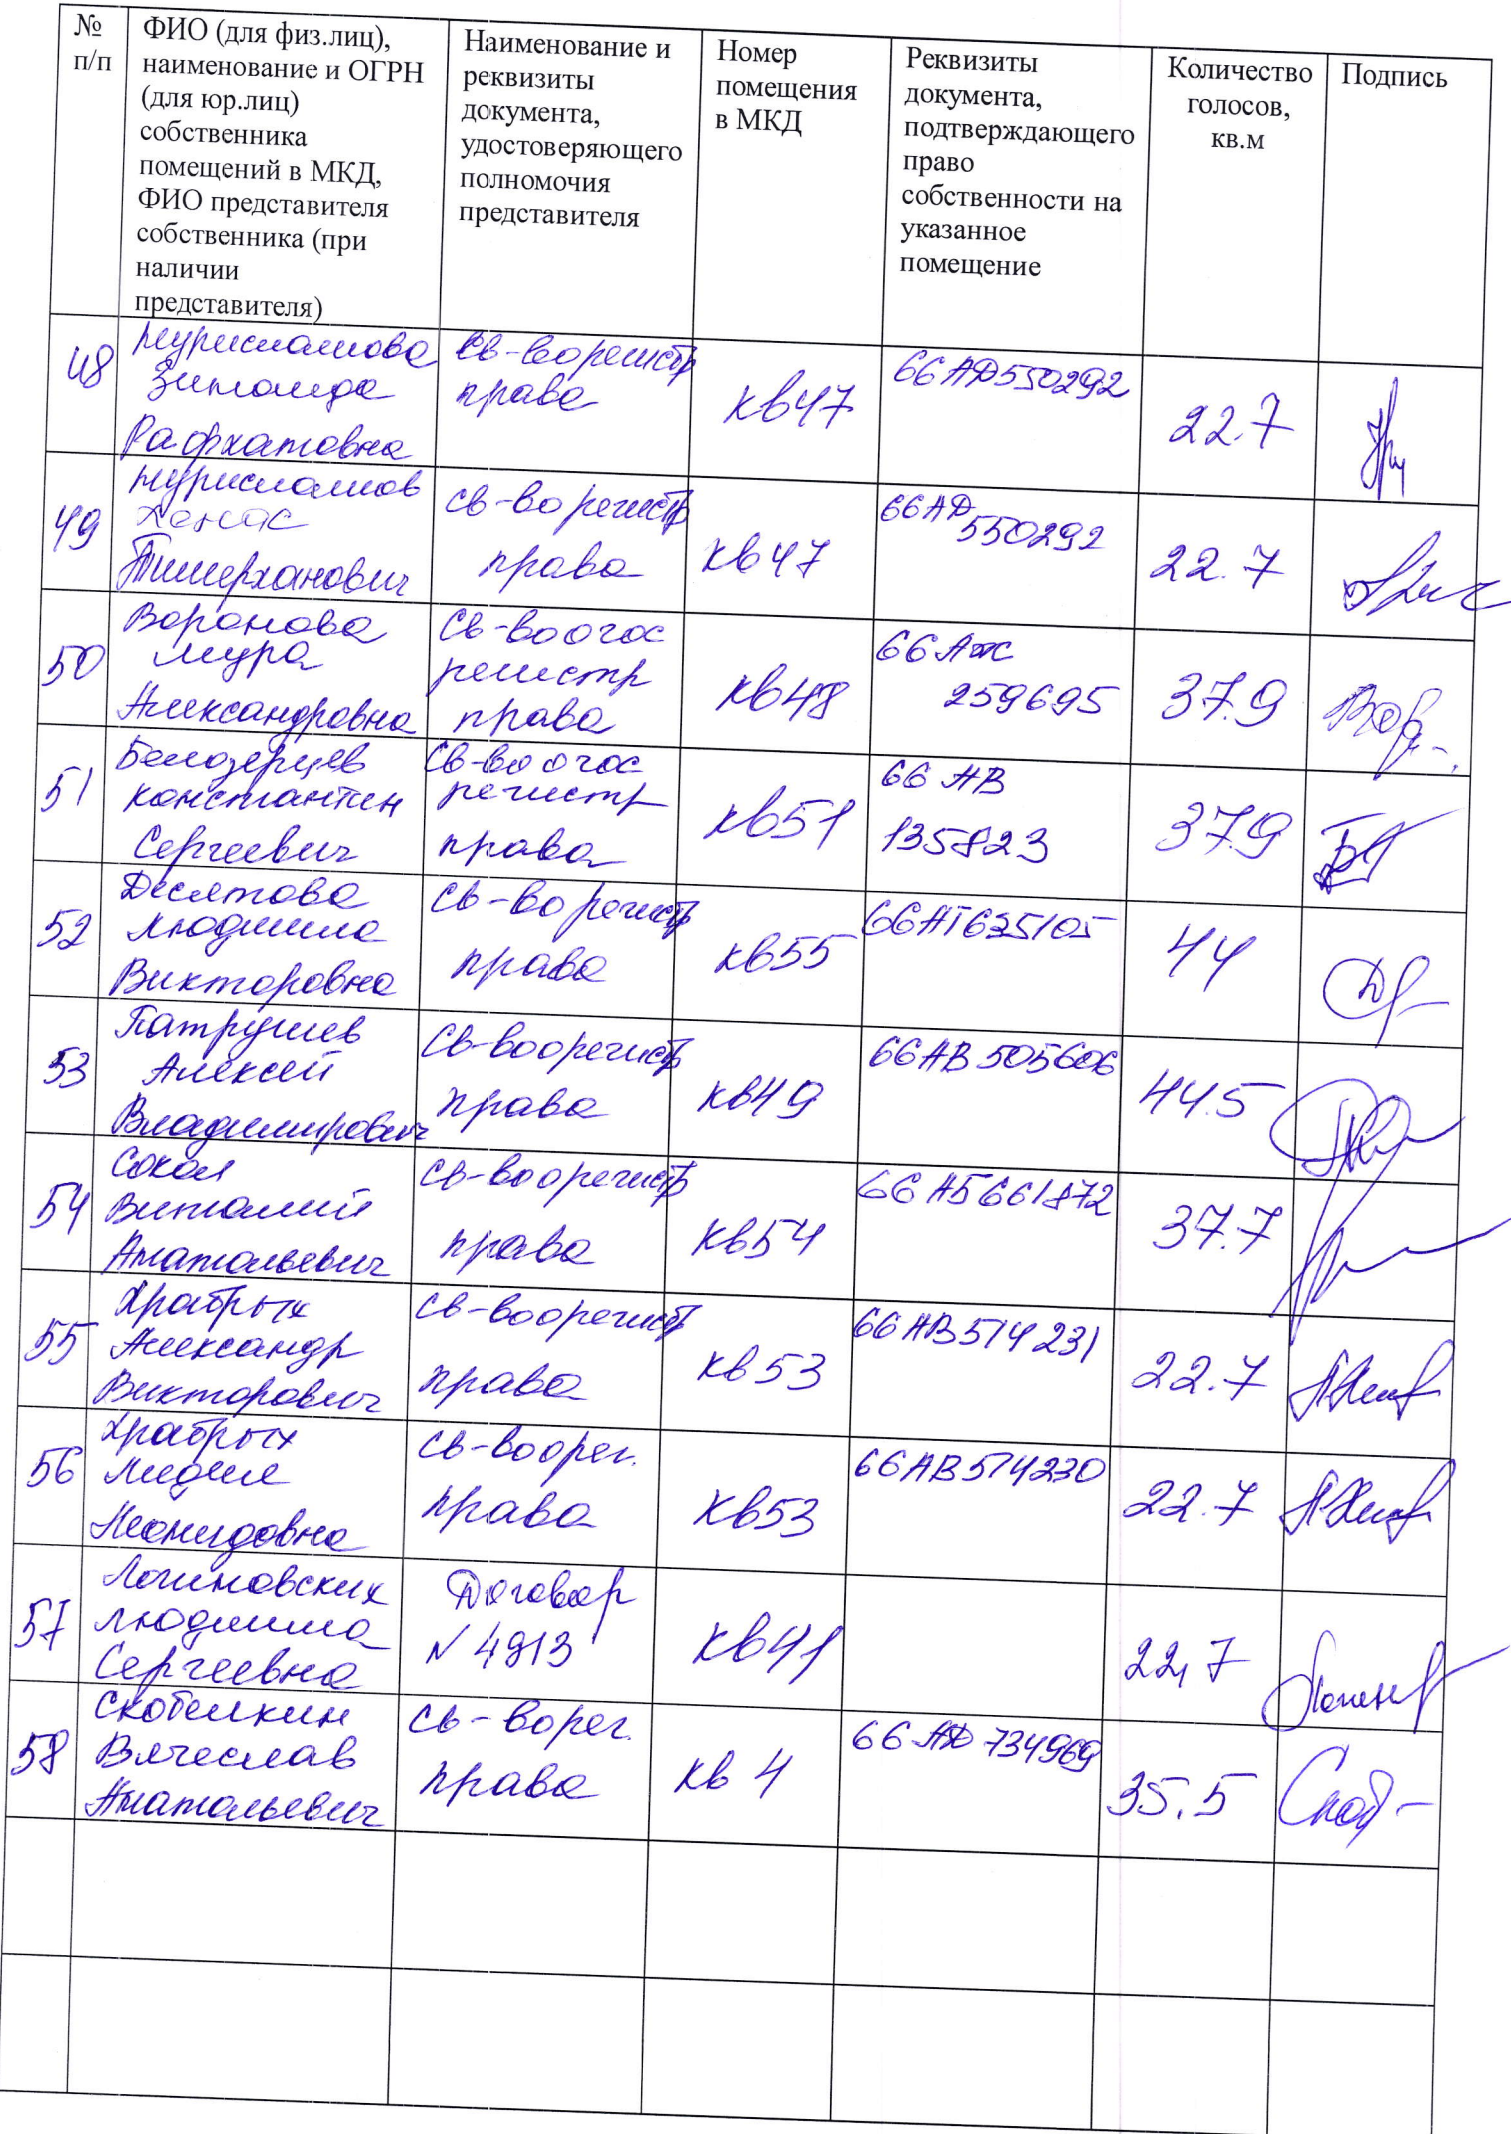 № п/п
ФИО (для физ.лиц),
наименование и ОГРН
(для юр.лиц)
собственника
помещений в МКД,
ФИО представителя
собственника (при
наличии
представителя)
Наименование и
реквизиты
документа,
удостоверяющего
полномочия
представителя
Номер
помещения
в МКД
Реквизиты
документа,
подтверждающего
право
собственности на
указанное
помещение
Количество
голосов,
кв.м
Подпись
48
Нурисламова
Зинаида
Рафхатовна
Св-во регистр
права
кв47
66АД550292
22.7
49
Нурисламов
Ханас
Тимерханович
св-во регистр
права
кв47
66АД
550292
22.7
50
Воронова
Нура
Александровна
Св-во огос
регистр
права
кв48
66АЖ
259695
37.9
Вор
51
Белозерцев
Константин
Сергеевич
Св-во огос
регистр
права
кв51
66 АВ
135823
37.9
52
Десятова
Людмила
Викторовна
св-во регистр
права
кв55
66АГ635105
44
53
Патрушев
Алексей
Владимирович
Св-воорегистр
права
кв49
66АВ505606
44.5
54
Сокол
Виталий
Анатольевич
св-воорегистр
права
кв54
66АБ661872
37.7
55
Храбрых
Александр
Викторович
св-воорегистр
права
кв53
66АВ514231
22.7
56
Храбрых
Лидия
Леонидовна
св-воорег.
права
кв53
66АВ514230
22.7
57
Логиновских
Людмила
Сергеевна
Договор
N 4913
кв41
22,7
58
Скобелкин
Вячеслав
Анатольевич
св-ворег.
права
кв 4
66АД 734969
35.5
Скоб